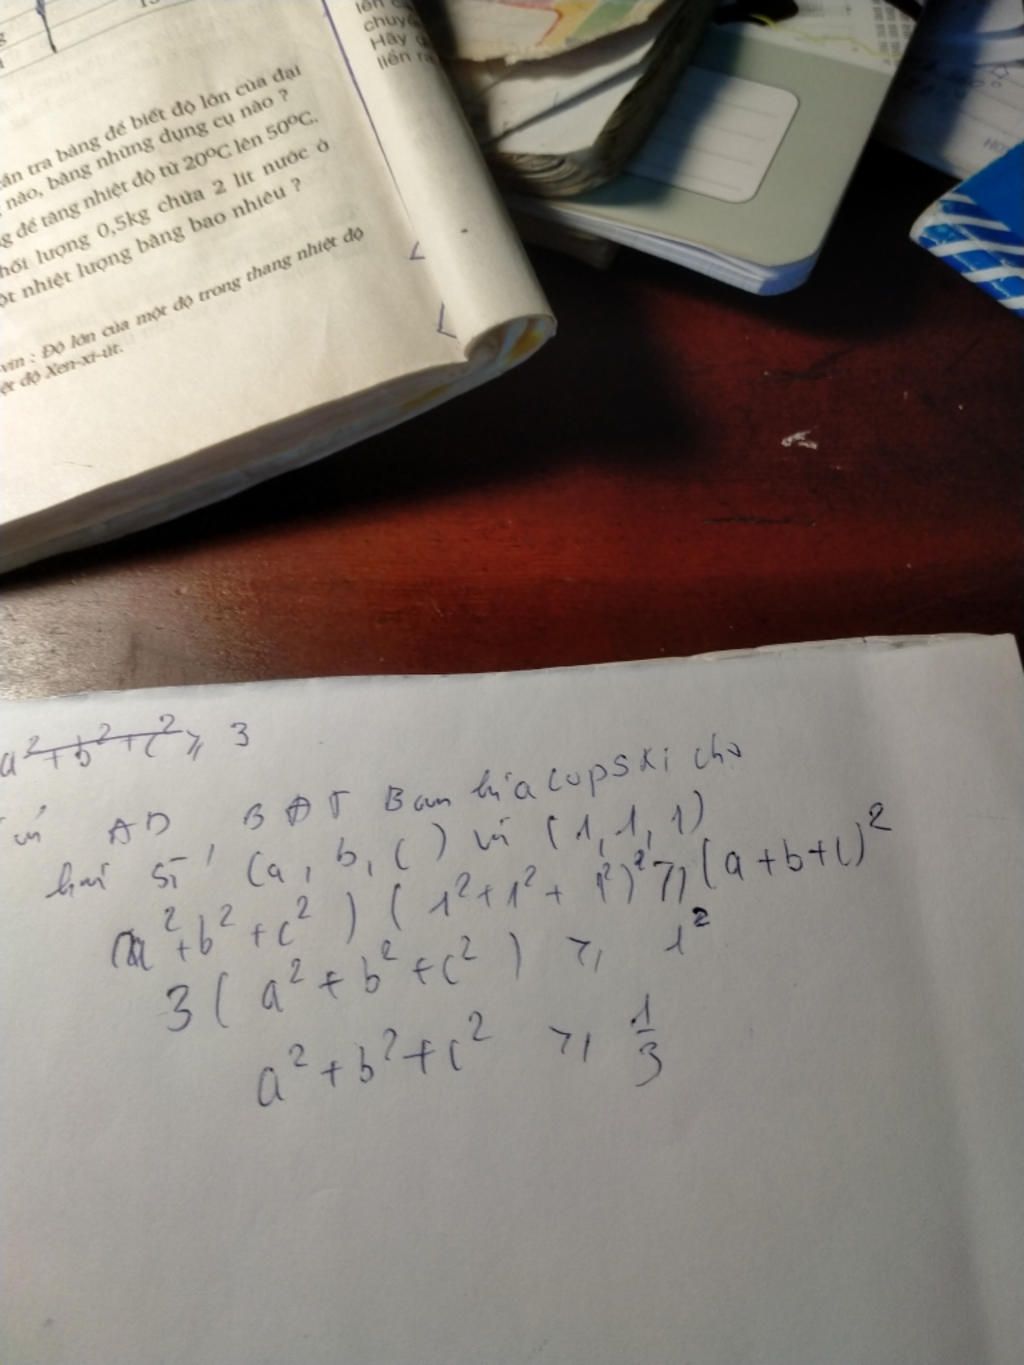 lên
chuyể
Hãy
liền
ần tra bảng để biết độ lớn của đại
nào, bằng những dụng cụ nào ?
g để tăng nhiệt độ từ 20°C lên 50°C.
hối lượng 0,5kg chứa 2 lít nước ở
ột nhiệt lượng bằng bao nhiêu ?
vin : Độ lớn của một độ trong thang nhiệt độ
ệt độ Xen-xi-út.
a² + b² + c² ≥ 3
AD BĐT Bunhiacopski cho
hai số (a, b, c) và (1, 1, 1)
(a² + b² + c²) (1² + 1² + 1²)² ≥ (a + b + c)²
3 (a² + b² + c²) ≥ 1²
a² + b² + c² ≥ 1/3